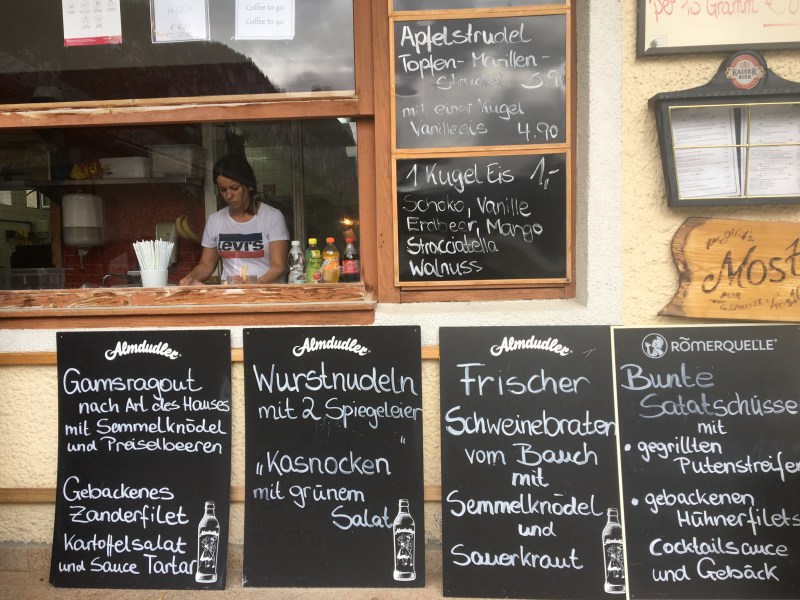 Coffee to go
per 10 Gramm
KAISER
BIER
Apfelstrudel
Topfen-Marillen-
Strudel 3.9
mit einer Kugel
Vanilleeis 4.90
1 Kugel Eis 1,-
Schoko, Vanille
Erdbeer, Mango
Stracciatella
Walnuss
Levi's
Most
Almdudler
Gamsragout
nach Art des Hauses
mit Semmelknödel
und Preiselbeeren
Gebackenes
Zanderfilet
Kartoffelsalat
und Sauce Tartar
Almdudler
Wurstnudeln
mit 2 Spiegeleier
„Kasnocken“
mit grünem
Salat
Almdudler
Frischer
Schweinebraten
vom Bauch
mit
Semmelknödel
und
Sauerkraut
RÖMERQUELLE
Bunte
Salatschüsse
mit
• gegrillten
Putenstreifen
• gebackenen
Hühnerfilets
Cocktailsauce
und Gebäck